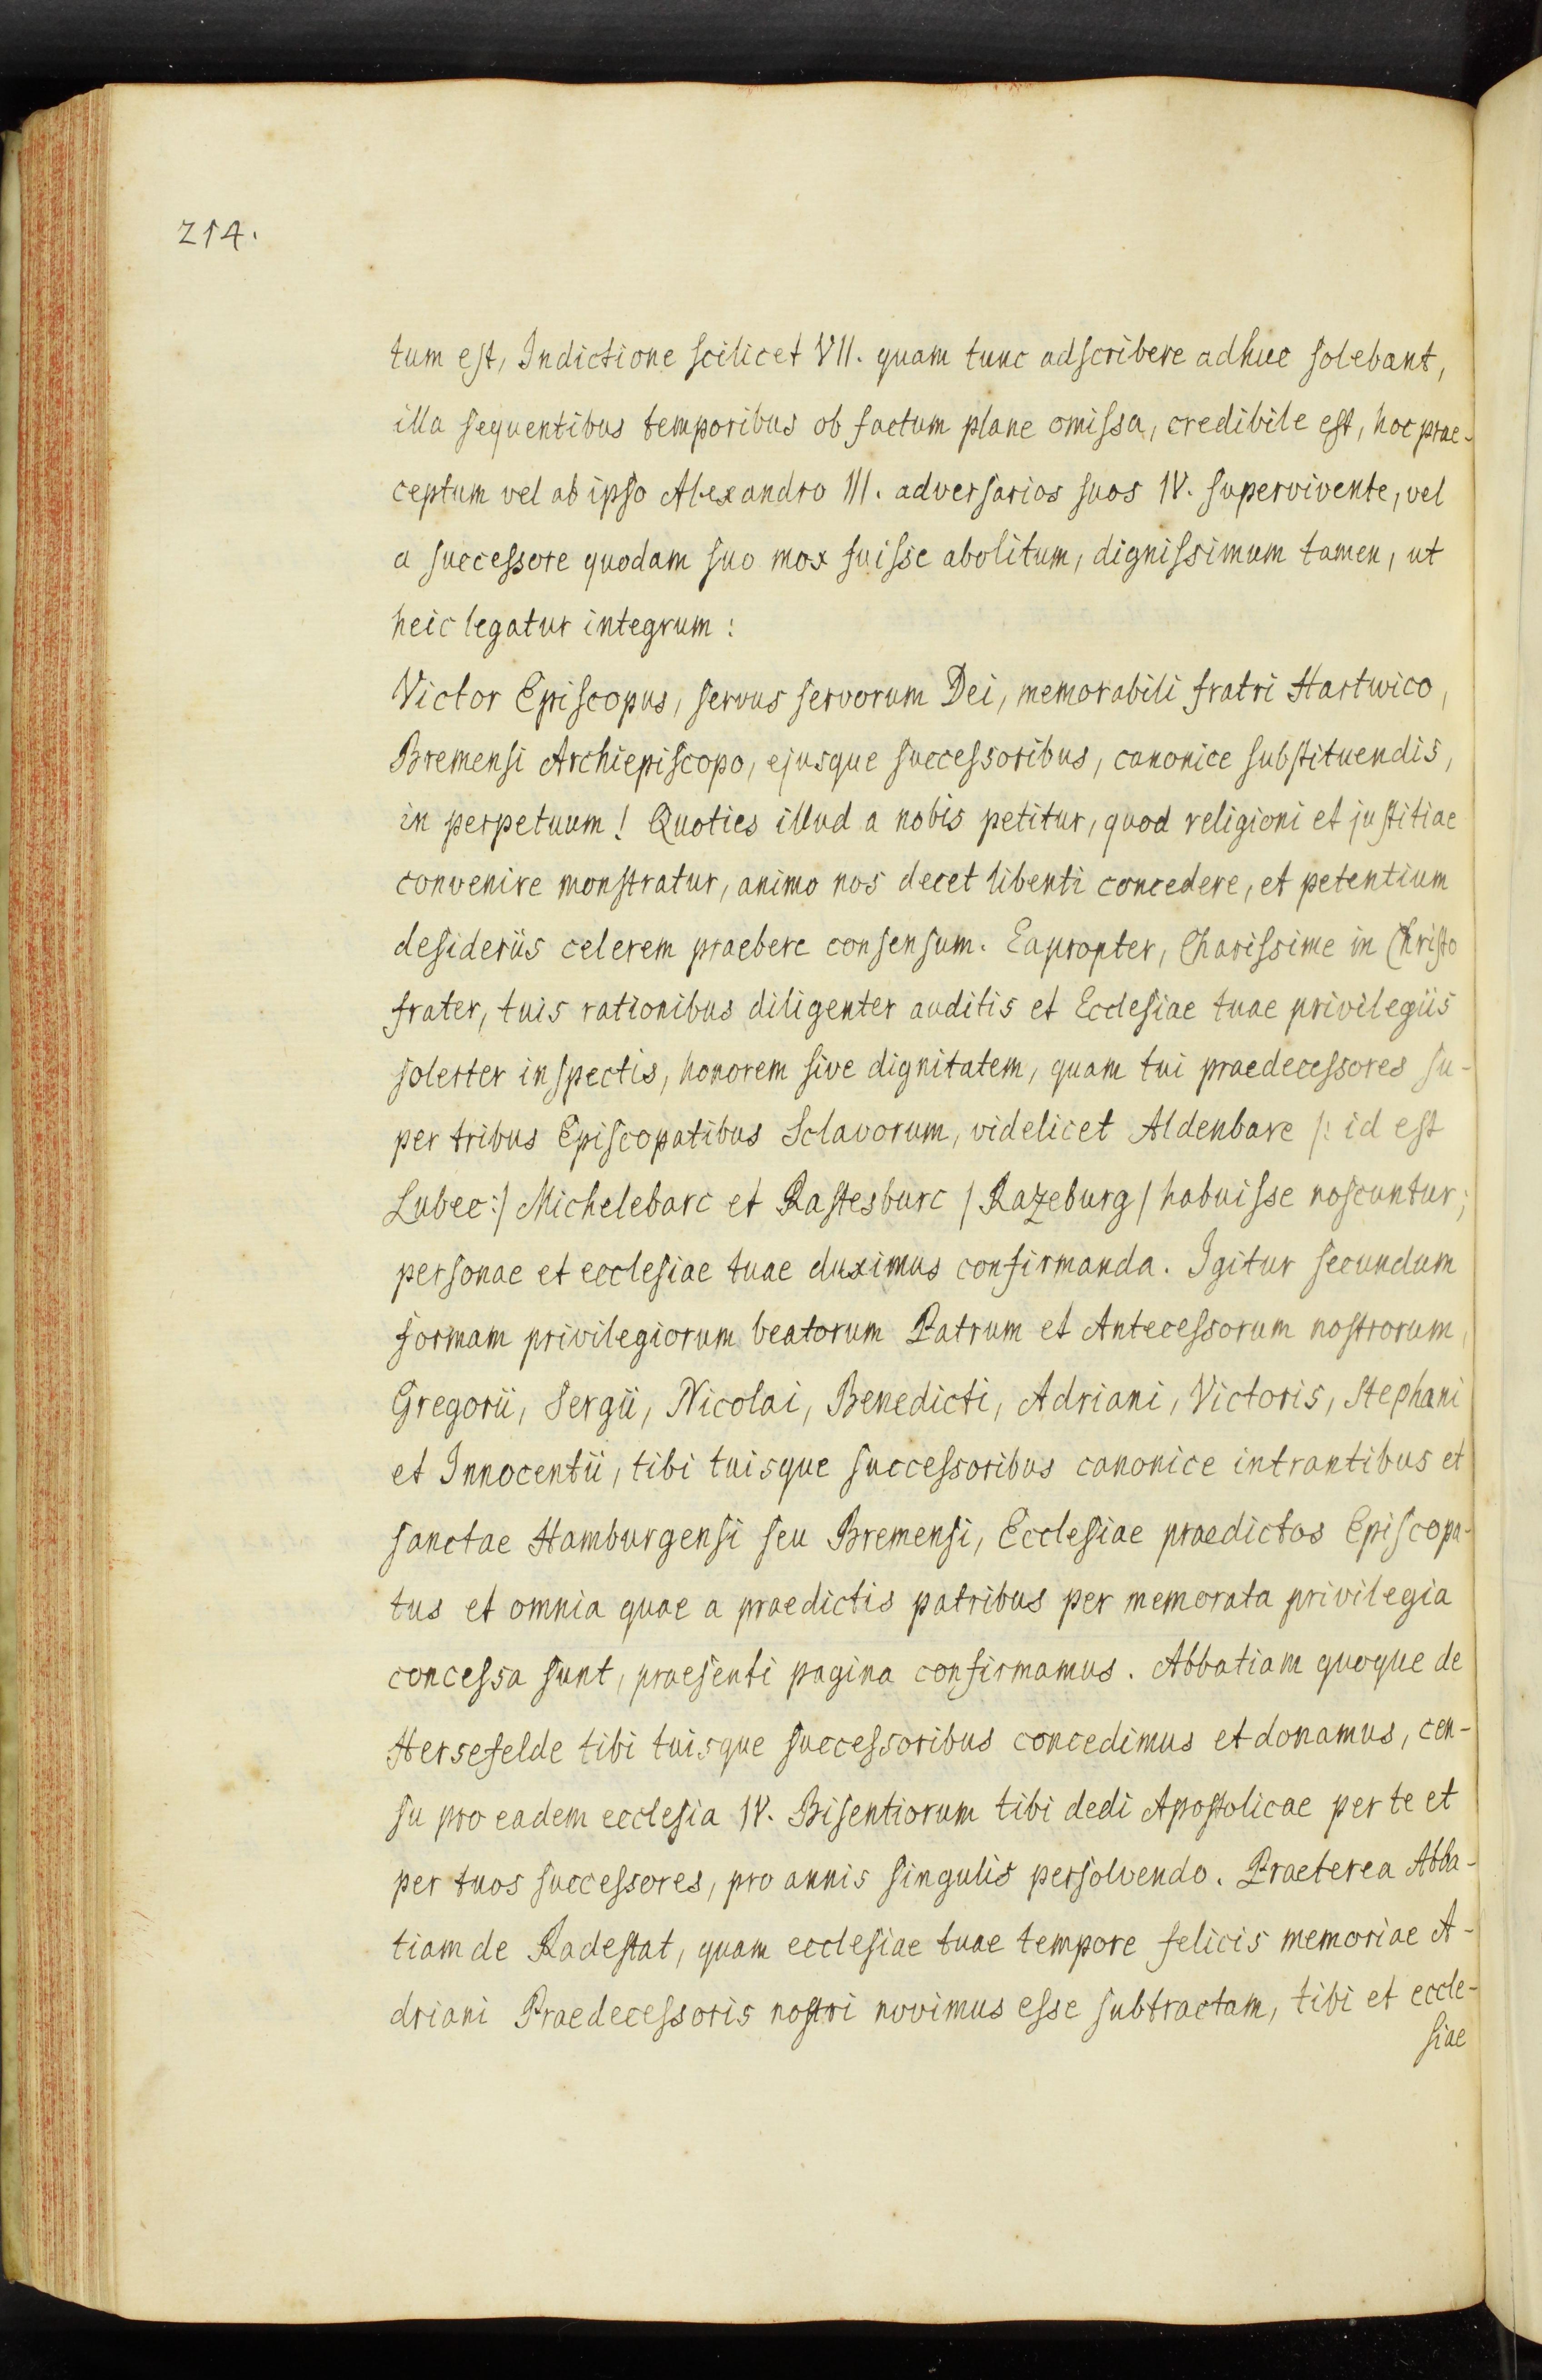 214.
tum est, Indictione scilicet VII. quam tunc adscribere adhuc solebant,
illa sequentibus temporibus ob factum plane omissa, credibile est, hoc prae-
ceptum vel ab ipso Alexandro III. adversarios suos IV. supervivente, vel
a successore quodam suo mox fuisse abolitum, dignissimum tamen, ut
heic legatur integrum:
Victor Episcopus, servus servorum Dei, memorabili fratri Hartwico,
Bremensi Archiepiscopo, ejusque successoribus, canonice substituendis,
in perpetuum! Quoties illud a nobis petitur, quod religioni et justitiae
convenire monstratur, animo nos decet libenti concedere, et petentium
desideriis celerem praebere consensum. Eapropter, Charissime in Christo
frater, tuis rationibus diligenter auditis et Ecclesiae tuae privilegiis
solerter inspectis, honorem sive dignitatem, quam tui praedecessores su-
per tribus Episcopatibus Sclavorum, videlicet Aldenbare /: id est
Lubec :/ Michelebarc et Rastesburc / Razeburg / habuisse noscuntur;
personae et ecclesiae tuae duximus confirmanda. Igitur secundum
formam privilegiorum beatorum Patrum et Antecessorum nostrorum,
Gregorii, Sergii, Nicolai, Benedicti, Adriani, Victoris, Stephani
et Innocentii, tibi tuisque successoribus canonice intrantibus et
sanctae Hamburgensi seu Bremensi, Ecclesiae praedictos Episcopa-
tus et omnia quae a praedictis patribus per memorata privilegia
concessa sunt, praesenti pagina confirmamus. Abbatiam quoque de
Hersefelde tibi tuisque successoribus concedimus et donamus, cen-
su pro eadem ecclesia IV. Bisentiorum tibi dedi Apostolicae per te et
per tuos successores, pro annis singulis persolvendo. Praeterea Abba-
tiam de Radestat, quam ecclesiae tuae tempore felicis memoriae A-
driani Praedecessoris nostri novimus esse subtractam, tibi et eccle-
siae